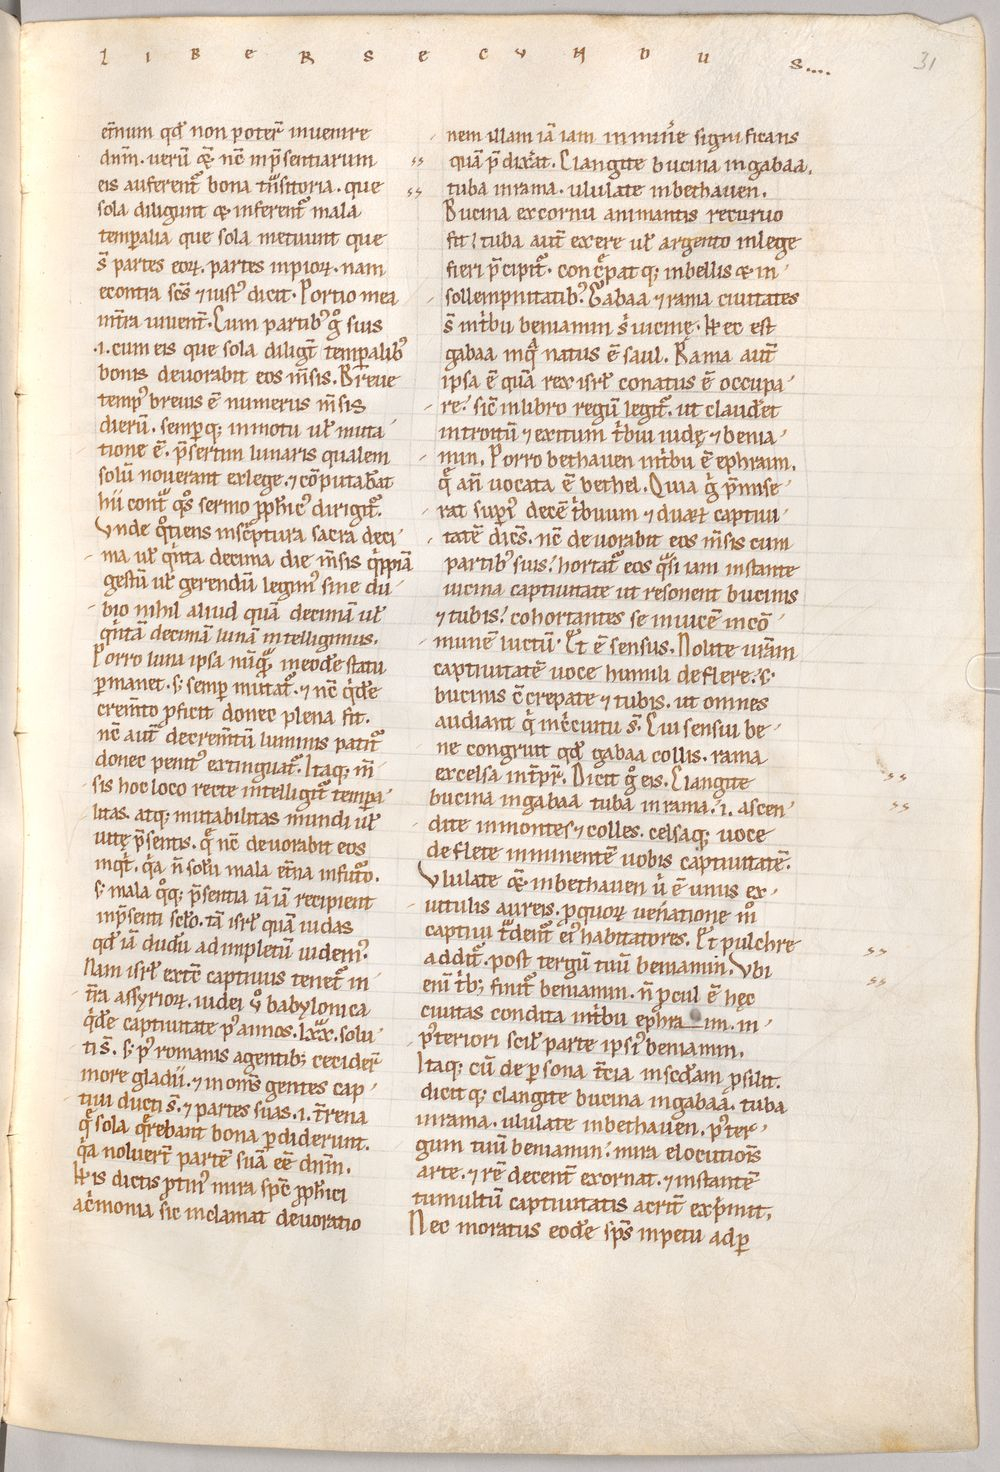 LIBER SECVNDUS....
31
et̄num qd̄ non poter̄ inuenire
dn̄m. uerū &̄ nc̄ inp̄sentiarum
eis auferent̄ bona tn̄sitoria. que
sola diligunt & inferent̄ mala
temp̄alia que sola metuunt que
s̄ partes eoꝝ. partes inpioꝝ. nam
econtra sc̄s ⁊ iust᷒ dicit. Portio mea
in t̄ra uiuent̄. Cum partib᷒ g̊ suis
.i. cum eis que sola diligt̄ temp̄alib᷒
bonis deuorabit eos m̄sis. Breue
temp᷒ breuis ē numerus m̄sis
dierū. semperq; in motu ul̄ muta
tione ē. p̄sertim lunaris qualem
solū nouerant ex lege. ⁊ cōputabāt
hii cont̄ q̊s sermo ꝓph̄ic᷒ dirigit̄.
Vnde q̊tiens in sc̄ptura sacra deci
ma ul̄ q̍nta decima die m̄sis q̍ppiā
gestū ul̄ gerendū legim᷒ sine du
bio nihil aliud quā decimā ul̄
q̍ntā decimā lunā intelligimus.
Porro luna ipsa nūq̄ in eodē statu
ꝑmanet. s; semꝑ mutat̄. ⁊ nc̄ q̍dē
crem̄to ꝓficit donec plena fit.
nc̄ aut̄ decrem̄tū luminis patit̄
donec penit᷒ extinguat̄. Itaq; m̄
sis hoc loco recte intelligit̄ tempa
litas. atq; mutabilitas mundi ul̄
uitę p̄sentis. q̄ nc̄ deuorabit eos
inqt̍. q̍a n̄ solū mala et̄na in fut̄o.
s; mala q̊q; p̄sentia iā iā recipient
inp̄senti sclo. tā isrl̄ quā iudas
qd̄ iā dudū adimpletū uidem᷒.
Nam isrl̄ ex tc̄ captiuus tenet̄ in
t̄ra assyrioꝝ. iudei ů babylonica
q̍dē captiuitate p᷒ annos. lxx. solu
ti s̄. s; p᷒ romanis agentib; cecider̄
in ore gladii. ⁊ in om̄s gentes cap
tiui ducti s̄. ⁊ partes suas .i. t̄rena
q̄ sola q̄rebant bona ꝑdiderunt.
q̍a noluer̄t partē suā eē dn̄m.
His dictis ꝓtin᷒ mira spc̄ ꝓph̄ici
ac̍monia sic inclamat deuoratio
nem illam iā iam imminē significans
quā p̄dixāt. Clangite bucina in gabaa.
tuba in rama. ululate in bethauen.
Bucina ex cornu animantis recuruo
fit; tuba aut̄ ex ere ul̄ argento in lege
fieri p̄cipit̄. conc̄patq; in bellis & in
sollempnitatib᷒. Gabaa ⁊ rama ciuitates
s̄ in t̍bu beniamin s̍ uicinę. Hec est
gabaa in q̄ natus ē saul. Rama aut̄
ipsa ē quā rex isrl̄ conatus ē occupa
re; sic̄ in libro regū legit̄. ut claudet
introitū ⁊ exitum t̍bui iudę ⁊ benia
min. Porro bethauen in t̍bu ē ephraim.
q̄ an̄ uocata ē bethel. Quia g̍ p̄mise
rat sup̍ decē t̍buum ⁊ duaꝝ captiui
tatē dic̄s. nc̄ deuorabit eos m̄sis cum
partib᷒ suis; hortat̄ eos q̄si iam instante
uicina captiuitate ut resonent bucinis
⁊ tubis; cohortantes se inuicē in cō
munē luctū. Et ē sensus. Nolite ur̄am
captiuitatē uoce humili deflere. s;
bucinis c̄crepate ⁊ tubis. ut omnes
audiant q̍ in c̍cuitu s̄. Cui sensui be
ne congruit qd̄ gabaa collis. rama
excelsa int̄p̄r̄. Dicit g̊ eis. Clangite
bucina in gabaa tuba in rama; .i. ascen
dite in montes ⁊ colles. celsaq; uoce
deflete imminentē uobis captiuitatē.
Vlulate &̄ in bethauen u̍ ē unus ex
uitulis aureis. ꝓ quoꝝ ueneratione m̊
captiui t̄dent̄ ei᷒ habitatores. Et pulchre
addit̄. post tergū tuū beniamin. Vbi
eni t̍b; finit̄ beniamin. n̄ ꝓcul ē hęc
ciuitas condita in t̍bu ephraim. in
p᷒teriori scil̄ parte ipsi᷒ beniamin.
Itaq; cū de ꝑsona t̄cia in scd̄am ꝓsilit.
dicitq; clangite bucina in gabaa. tuba
in rama. ululate in bethauen. p᷒ ter
gum tuū beniamin; mira elocutiōis
arte. ⁊ rē decent̄ exornat. ⁊ instantē
tumultū captiuitatis acrit̄ exp̍mit.
Nec moratus eodē sps̄ inpetu ad ꝑ